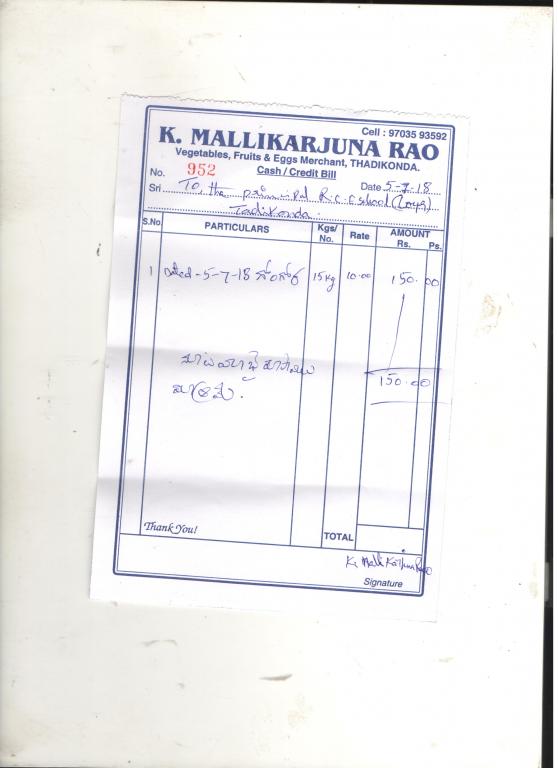 Cell : 97035 93592
K. MALLIKARJUNA RAO
Vegetables, Fruits & Eggs Merchant, THADIKONDA.
Cash / Credit Bill
No. 952
Date 5-7-18
Sri To, the principal R.C.C school (Loya)
Tadikonda.
S.No. PARTICULARS Kgs/ No. Rate AMOUNT Rs. Ps.
1 Dated-5-7-18 గోంగూర 15 kg 10.00 150.00
150.00
Thank You!
TOTAL
K. Mallikarjuna Rao
Signature